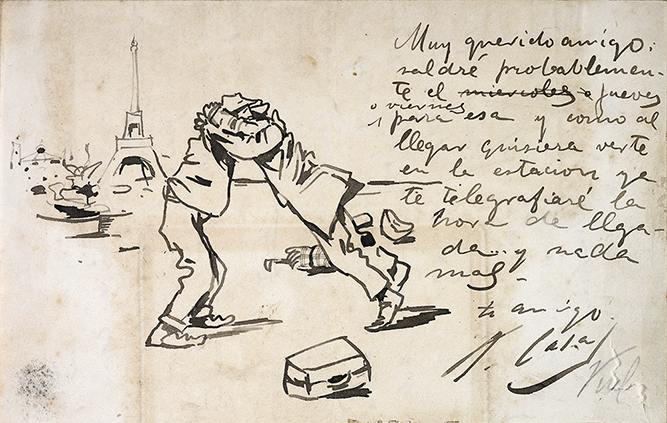 Muy querido amigo:
saldré probablemen-
te el miercoles o jueves
o viernes
para esa y como al
llegar quisiera verte
en la estacion ya
te telegrafiaré la
hora de llega-
da.. y nada
mas -
tu amigo.
R. Casas